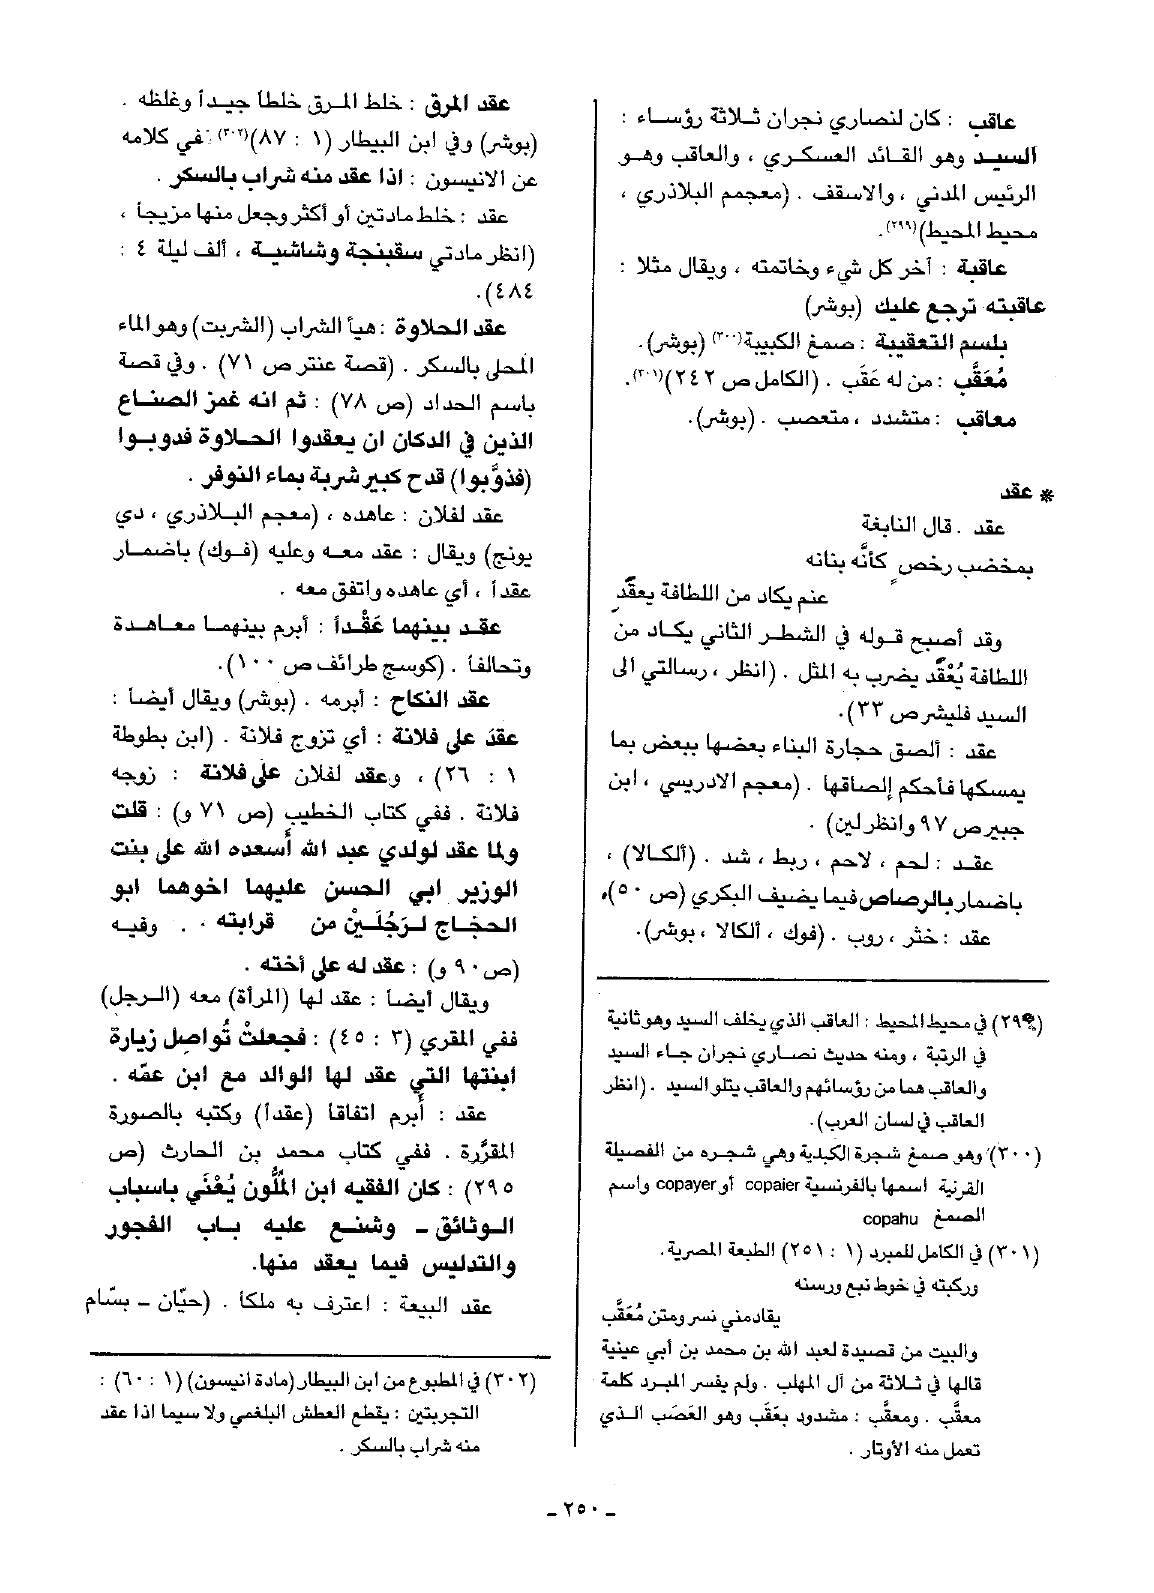 عاقب : كان لنصارى نجران ثلاثة رؤساء :
السيد وهو القائد العسكري ، والعاقب وهو
الرئيس المدني ، والاسقف . (معجم البلاذري ،
محيط المحيط)(٢٩٩).
عاقبة : آخر كل شيء وخاتمته ، ويقال مثلا :
عاقبته ترجع عليك (بوشر)
بلسم التعقيبة : صمغ الكبيبة(٣٠٠) (بوشر).
مُعَقَّب : من له عَقَب . (الكامل ص ٢٤٢)(٣٠١).
معاقب : متشدد ، متعصب . (بوشر).
* عقد
عقد . قال النابغة
بمخضب رخصٍ كأنَّه بنانه
عنم يكاد من اللطافة يعقَّدِ
وقد أصبح قوله في الشطر الثاني يكاد من
اللطافة يُعْقَد يضرب به المثل . (انظر ، رسالتي الى
السيد فليشر ص ٣٣).
عقد : ألصق حجارة البناء بعضها ببعض بما
يمسكها فأحكم إلصاقها . (معجم الادريسي ، ابن
جبير ص ٩٧ وانظر لين) .
عقد : لحم ، لاحم ، ربط ، شد . (ألكالا) ،
باضمار بالرصاص فيما يضيف البكري (ص ٥٠).
عقد : خثر ، روب . (فوك ، ألكالا ، بوشر).
(٢٩٩) في محيط المحيط : العاقب الذي يخلف السيد وهو ثانية
في الرتبة ، ومنه حديث نصارى نجران جاء السيد
والعاقب هما من رؤسائهم والعاقب يتلو السيد . (انظر
العاقب في لسان العرب).
(٣٠٠) وهو صمغ شجرة الكبدية وهي شجره من الفصيلة
القرنية اسمها بالفرنسية copaier أو copayer واسم
الصمغ copahu
(٣٠١) في الكامل للمبرد (١ : ٢٥١) الطبعة المصرية.
وركبته في خوط نبع ورسنه
يقادمني نسر ومتن مُعَقَّب
والبيت من قصيدة لعبد الله بن محمد بن أبي عيينة
قالها في ثلاثة من آل المهلب . ولم يفسر المبرد كلمة
معقَّب . ومعقَّب : مشدود بعَقَب وهو العَصَب الذي
تعمل منه الأوتار .
عقد المرق : خلط المرق خلطاً جيداً وغلظه .
(بوشر) وفي ابن البيطار (١ : ٨٧)(٣٠٢) : في كلامه
عن الانيسون : اذا عقد منه شراب بالسكر .
عقد : خلط مادتين أو أكثر وجعل منها مزيجاً ،
(انظر مادتي سقبنجة وشاشية ، ألف ليلة ٤ :
٤٨٤).
عقد الحلاوة : هيأ الشراب (الشربت) وهو الماء
المحلى بالسكر . (قصة عنتر ص ٧١) . وفي قصة
باسم الحداد (ص ٧٨) : ثم انه غمز الصناع
الذين في الدكان ان يعقدوا الحلاوة فدوبوا
(فذوَّبوا) قدح كبير شربة بماء النوفر .
عقد لفلان : عاهده ، (معجم البلاذري ، دي
يونج) ويقال : عقد معه وعليه (فوك) باضمار
عقداً ، أي عاهده واتفق معه .
عقد بينهما عَقْداً : أبرم بينهما معاهدة
وتحالفاً . (كوسج طرائف ص ١٠٠).
عقد النكاح : أبرمه . (بوشر) ويقال أيضاً :
عقدَ على فلانة : أي تزوج فلانة . (ابن بطوطة
١ : ٢٦) ، وعقد لفلان على فلانة : زوجه
فلانة . ففي كتاب الخطيب (ص ٧١ و) : قلت
ولما عقد لولدي عبد الله أسعده الله على بنت
الوزير ابي الحسن عليهما اخوهما ابو
الحجاج لرَجُلَيْن من قرابته . . وفيه
(ص ٩٠ و) : عقد له على أخته .
ويقال أيضاً : عقد لها (المرأة) معه (الرجل)
ففي المقري (٣ : ٤٥) : فجعلتْ تُواصل زيارة
أبنتها التي عقد لها الوالد مع ابن عمّه .
عقد : أبرم اتفاقاً (عقداً) وكتبه بالصورة
المقرَّرة . ففي كتاب محمد بن الحارث (ص
٢٩٥) : كان الفقيه ابن الملُّون يُعْنَي باسباب
الوثائق ـ وشنع عليه باب الفجور
والتدليس فيما يعقد منها.
عقد البيعة : اعترف به ملكاً . (حيّان ـ بسّام
(٣٠٢) في المطبوع من ابن البيطار (مادة انيسون) (١ : ٦٠) :
التجربتين : يقطع العطش البلغمي ولا سيما اذا عقد
منه شراب بالسكر .
ـ ٢٥٠ ـ